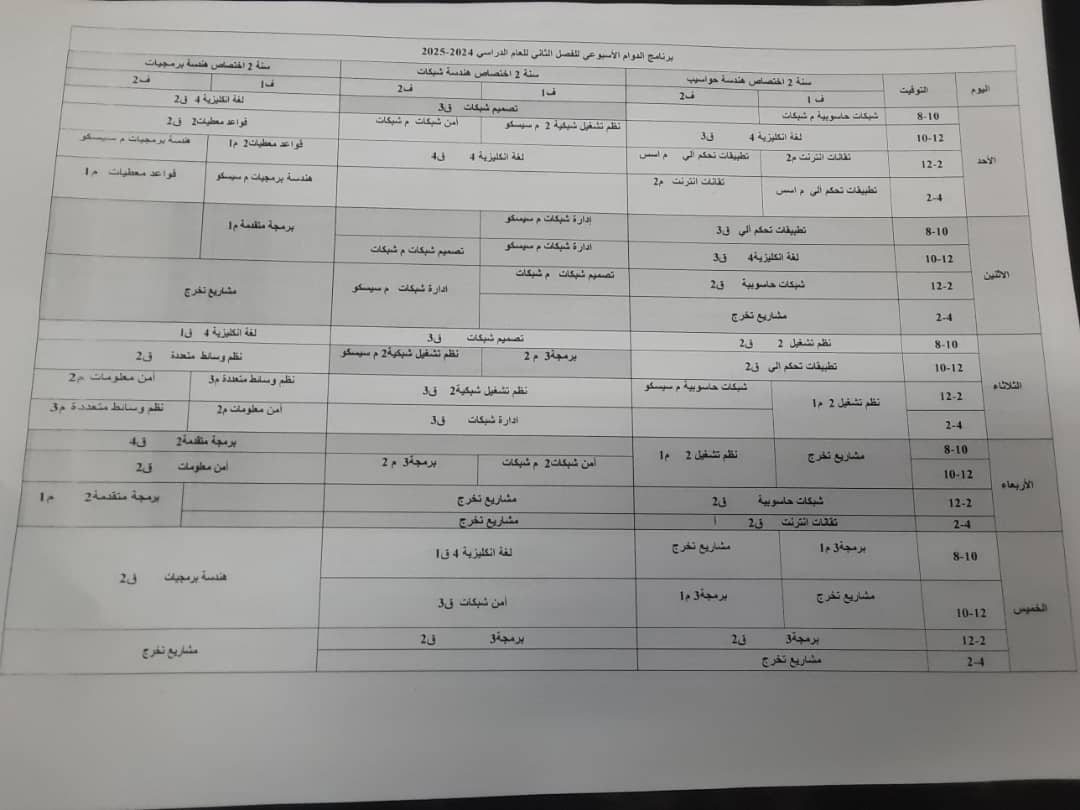 برنامج الدوام الأسبوعي للفصل الثاني للعام الدراسي 2024-2025
اليوم التوقيت سنة 2 اختصاص هندسة حواسيب سنة 2 اختصاص هندسة شبكات سنة 2 اختصاص هندسة برمجيات
ف 1 ف2 ف1 ف2 ف1 ف2
الأحد
8-10 شبكات حاسوبية م شبكات تصميم شبكات ق3 لغة انكليزية 4 ق2
10-12 لغة انكليزية 4 ق3 نظم تشغيل شبكية 2 م سيسكو أمن شبكات م شبكات قواعد معطيات2 ق2
12-2 تقانات انترنت م2 تطبيقات تحكم الي م اسس لغة انكليزية 4 ق4 قواعد معطيات2 م1 هندسة برمجيات م سيسكو
2-4 تطبيقات تحكم الي م اسس تقانات انترنت م2 هندسة برمجيات م سيسكو قواعد معطيات م1
الاثنين
8-10 تطبيقات تحكم الي ق3 إدارة شبكات م سيسكو برمجة متقدمة م1
10-12 لغة انكليزية4 ق3 ادارة شبكات م سيسكو تصميم شبكات م شبكات
12-2 شبكات حاسوبية ق2 تصميم شبكات م شبكات ادارة شبكات م سيسكو مشاريع تخرج
2-4 مشاريع تخرج
الثلاثاء
8-10 نظم تشغيل 2 ق2 تصميم شبكات ق3 لغة انكليزية 4 ق1
10-12 تطبيقات تحكم الي ق2 برمجة3 م 2 نظم تشغيل شبكية2 م سيسكو نظم وسائط متعددة ق2
12-2 نظم تشغيل 2 م1 شبكات حاسوبية م سيسكو نظم تشغيل شبكية2 ق3 نظم وسائط متعددة م3 أمن معلومات م2
2-4 ادارة شبكات ق3 أمن معلومات م2 نظم وسائط متعددة م3
الأربعاء
8-10 مشاريع تخرج نظم تشغيل 2 م1 برمجة متقدمة2 ق4
10-12 أمن شبكات2 م شبكات برمجة3 م 2 أمن معلومات ق2
12-2 شبكات حاسوبية ق2 مشاريع تخرج برمجة متقدمة2 م1
2-4 تقانات انترنت ق2 أ مشاريع تخرج
الخميس
8-10 برمجة3 م1 مشاريع تخرج لغة انكليزية 4 ق1 هندسة برمجيات ق2
10-12 مشاريع تخرج برمجة3 م1 أمن شبكات ق3
12-2 برمجة3 ق2 برمجة3 ق2 مشاريع تخرج
2-4 مشاريع تخرج